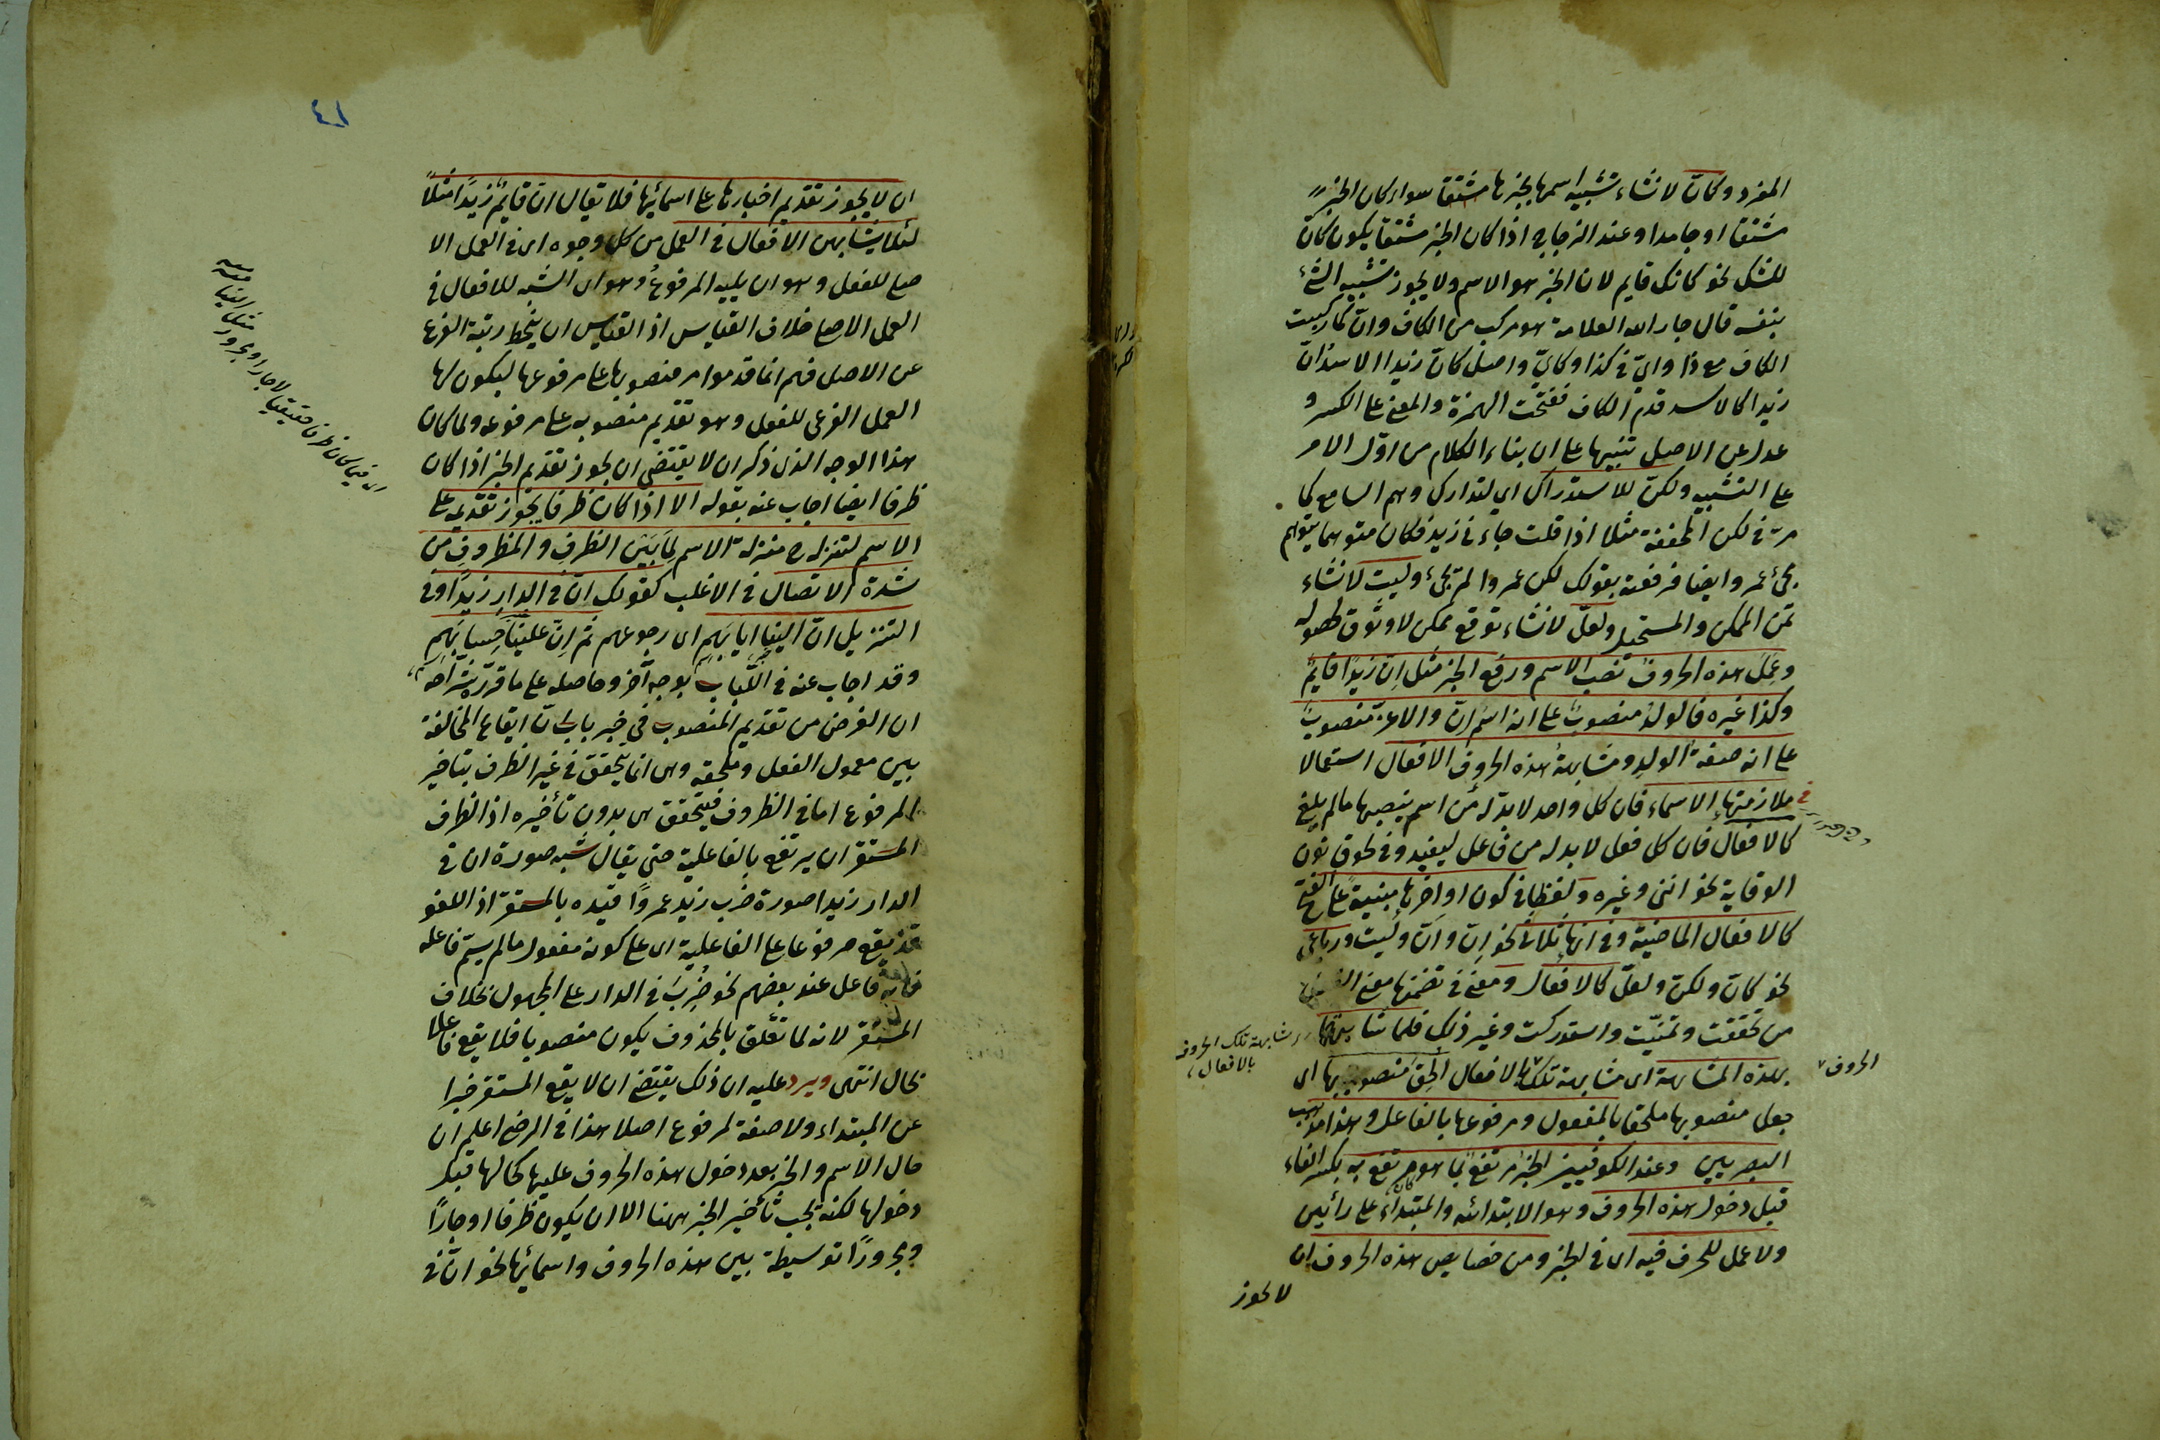 المفرد وكأنّ لانشاء تشبيه اسمها بخبرها مشتقا سواء كان الخبر
مشتقا او جامدا وعند الزجاج اذا كان الخبر مشتقا يكون كأنّ
للشك نحو كانك قايم لان الخبر هو الاسم ولا يجوز تشبيه الشئ
بنفسه قال جار الله العلامة هو مركب من الكاف وانّ كما ركبت
الكاف مع ذا وايّ في كذا وكايّ واصل كانّ زيدا الاسد انّ
زيدا كالاسد قدم الكاف ففتحت الهمزة والمعنى على الكسر و
عدل عن الاصل تنبيها على ان بناء الكلام من اوّل الامر
على التشبيه ولكنّ للاستدراك اي لتدارك وهم السامع كما
مرّ في لكن المخففة مثلا اذا قلت جاءني زيد فكان متوهما يتوهم
مجئ عمرو ايضا فرفعته بقولك لكن عمروا لم يجئ وليت لانشاء
تمنّ الممكن والمستحيل ولعلّ لانشاء توقع ممكن لا وثوق لحصوله
وعمل هذه الحروف نصب الاسم ورفع الخبر مثل انّ زيدا قايم
وكذا غيره فالولد منصوب على انه اسم انّ والاعز منصوب
على انه صفة الولد ومشابهة هذه الحروف الافعال استعمالا
في ملازمتها الاسماء فان كل واحد لابدّ له من اسم ينصبها مالم يلغ
كالافعال فان كل فعل لا بد له من فاعل ليفيد وفي لحوق نون
الوقاية نحو انني وغيره ولفظا في كون اواخرها مبنية على الفتح
كالافعال الماضية وفي انها ثلاثي نحو انّ وانّ وليت ورباعي
نحو كانّ ولكنّ ولعلّ كالافعال ومعنى في تضمنها معنى
من تحققت وتمنيّت واستدركت وغير ذلك فلما شابهتها
بهذه المشابهة اي مشابهة تلك بالافعال الحق منصوبها اي
الحروف
مشابهة تلك الحروف
بالافعال
جعل منصوبها ملحقا بالمفعول ومرفوعها بالفاعل وهذا مذهب
البصريين وعند الكوفيين الخبر مرتفع بما هو مرتفع به بكسر الفاء
قبل دخول هذه الحروف وهو الابتدائه والمبتداء على رائين
ولا عمل للحرف فيه اي في الخبر ومن خصايص هذه الحروف ان
لا يجوز
٤١
ان لا يجوز تقديم اخبارها على اسمائها فلا يقال انّ قايم زيدا مثلا
لئلا يشابهن الافعال في العمل من كل وجوه اي في العمل الا
صلى للفعل وهو ان يليه المرفوع وهو اي الشبه للافعال في
العمل الاصلى خلاف القياس اذ القياس ان ينحط رتبة الفرع
عن الاصل فهم انما قدموا منصوبها على مرفوعها ليكون لها
العمل الفرعى للفعل وهو تقديم منصوبه على مرفوعه ولما كان
هذا الوجه الذي ذكر ان لا يقتضى ان يجوز تقديم الخبر اذا كان
ظرفا ايضا اجاب عنه بقوله الا اذا كان ظرفا يجوز تقديمه على
الاسم لتنزله منزلة الاسم لما بين الظرف والمظروف من
شدة الاتصال في الاغلب كقولك انّ في الدار زيدا وفي
التنزيل انّ الينا ايابهم اي رجوعهم ثم انّ علينا حسابهم
وقد اجاب عنه في اللباب بوجه آخر وحاصله على ما قرّره شراحه
ان الغرض من تقديم المنصوب في خبر باب انّ ايقاع المخالفة
بين معمول الفعل وملحقه وهي انما يتحقق في غير الظرف بتاخير
المرفوع اما في الظروف فيتحقق هى بدون تأخيره اذ الظرف
المستقر ان يرتفع بالفاعلية حتى يقال شبه صورة ان في
الدار زيدا صورة ضرب زيد عمروا قيده بالمستقر اذ اللغو
قد يقع مرفوعا على الفاعلية اى على كونه مفعول مالم يسمّ فاعله
فانه فاعل عند بعضهم نحو ضُرِبَ في الدار على المجهول بخلاف
المستقر لانه لما تعلق بالمحذوف يكون منصوبا فلا يقع فاعلا
بحال انتهى ويرد عليه ان ذلك يقتضى ان لا يقع المستقر خبرا
عن المبتداء ولا صفة لمرفوع اصلا هذا في الرضى اعلم ان
حال الاسم والخبر بعد دخول هذه الحروف عليها كحالها قبل
دخولها لكنه يجب تأخير الخبر ههنا الا ان يكون ظرفا او جارّا
ومجرورا توسيطه بين هذه الحروف واسمائها نحو انّ في